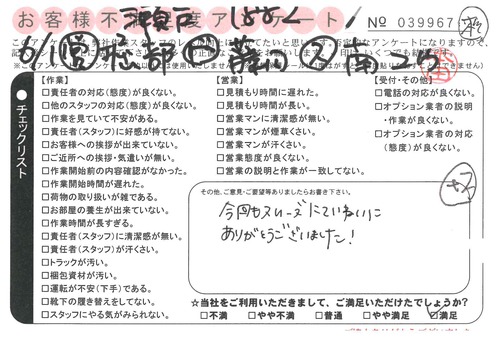 お客様不満足度アンケート
№ 039967
チェックリスト
【作業】
□責任者の対応(態度)が良くない。
□他のスタッフの対応(態度)が良くない。
□作業を見ていて不安がある。
□責任者(スタッフ)に好感が持てない。
□お客様への挨拶が出来ていない。
□ご近所への挨拶・気遣いが無い。
□作業開始前の内容確認がなかった。
□作業開始時間が遅れた。
□荷物の取り扱いが雑である。
□お部屋の養生が出来ていない。
□作業時間が長すぎる。
□責任者(スタッフ)に清潔感が無い。
□責任者(スタッフ)が汗くさい。
□トラックが汚い。
□梱包資材が汚い。
□運転が不安(下手)である。
□靴下の履き替えをしてない。
□スタッフにやる気がみられない。
【営業】
□見積もり時間に遅れた。
□見積もり時間が長い。
□営業マンに清潔感が無い。
□営業マンが煙草くさい。
□営業マンが汗くさい。
□営業態度が良くない。
□営業の説明と作業が一致してない。
【受付・その他】
□電話の対応が良くない。
□オプション業者の説明
・作業が良くない。
□オプション業者の対応
(態度)が良くない。
その他、ご意見・ご要望等ありましたらお書き下さい。
今回もスムーズにていねいに
ありがとうございました!
☆当社をご利用いただきまして、ご満足いただけたでしょうか?
□不満 □やや不満 □普通 □やや満足 ☑満足